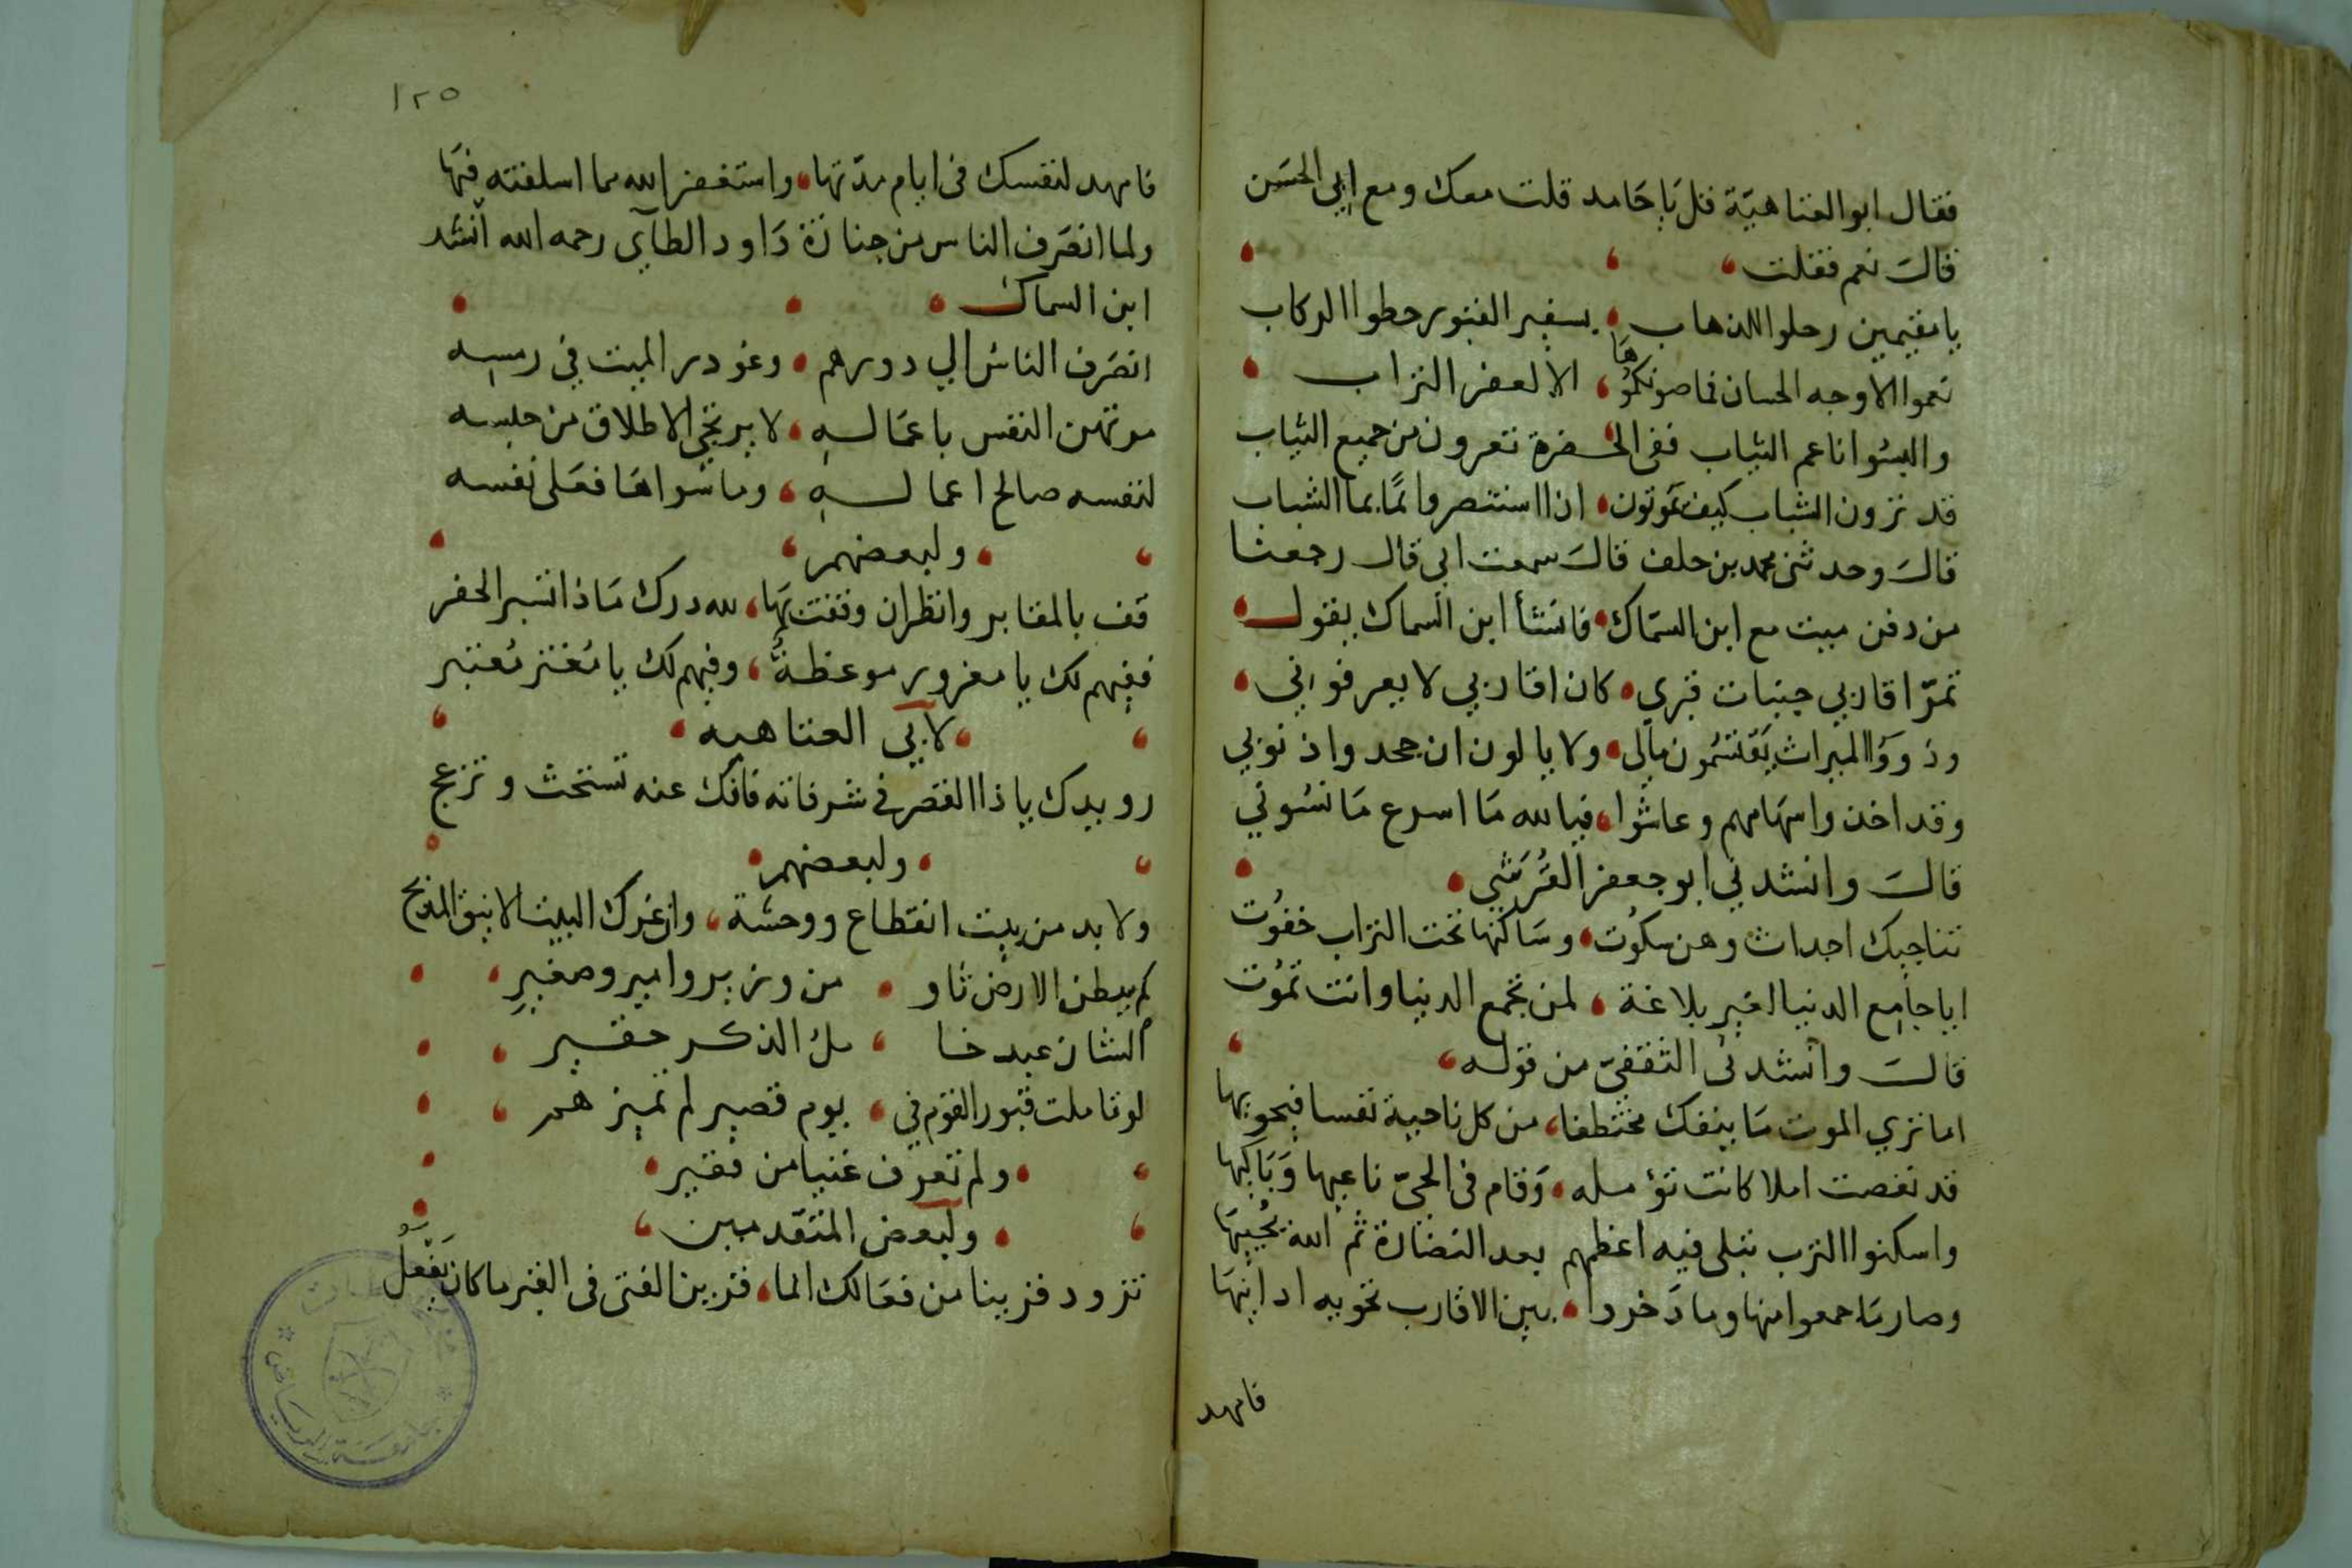 فقال ابو العتاهيّة قل يا حامد قلت معك ومع ابي الحسن
قالَ نعم فقلت
يا مقيمين رحلوا للذهاب بسفير القبور حطوا الركاب
نعموا الاوجه الحسان فما صونكموها الا لعفر التراب
والبسوا ناعم الثياب ففى الحفرة تعرون من جميع الثياب
قد ترون الشباب كيف تموتون اذا استنصروا بما الشباب
قالَ وحدثنى محمد بن خلف قالَ سمعت ابى قال رجعنا
من دفن ميت مع ابن السمّاك فانشأ ابن السماك يقول
تمرّ اقاربي جنبات قبري كان اقاربي لا يعرفوني
وذووُا الميراث يقتسمون مالي ولا يالون ان جحدوا ذنوبي
وقد اخذوا سهامهم وعاشوا فيا لله ما اسرع ما نسوني
قالَ وانشدني ابو جعفر القُرَشي
تناجيك احداث وهن سكوت وساكنها تحت التراب خفوت
ايا جامع الدنيا لغير بلاغة لمن تجمع الدنيا وانت تموت
قالَ وانشدنى الثقفىّ من قوله
اما تري الموت ما ينفك مختطفا من كل ناحية نفسا فيحويها
قد نغصت املا كانت تؤمله وقام فى الحىّ ناعيها وباكيها
واسكنوا الترب تبلى فيه اعظمهم بعد النضارة ثم الله يحييها
وصار ما جمعوا منها وما دخروا بين الاقارب تحويه ادانيها
فامهد
١٢٥
فامهد لنفسك فى ايام مدّتها واستغفر الله مما اسلفته فيها
ولما انصرف الناس من جنازة داود الطآي رحمه الله انشد
ابن السماك
انصرف الناس الي دورهم وغودر الميت في رمسه
مرتهن النفس باعماله لا يرتجي الاطلاق من حبسه
لنفسه صالح اعماله وما سواها فعلى نفسه
ولبعضهم
قف بالمقابر وانظر ان وقفت بها لله درك ماذا تستر الحفر
ففيهم لك يا مغرور موعظة وفيهم لك يا مغتر معتبر
لابي العتاهيه
رويدك يا ذا القصر فى شرفاته فانك عنه تستحث وتزعج
ولبعضهم
ولا بد من بيت انقطاع ووحشة وان غرك البيت الانيق المدبج
كم ببطن الارض ثاو من وزير وامير وصغير
الشان عبد خامل الذكر حقير
لو تاملت قبور القوم في يوم قصير لم تميزهم
ولم تعرف غنيا من فقير
ولبعض المتقدمين
تزود قرينا من فعالك انما قرين الفتى فى القبر ما كان يفعل